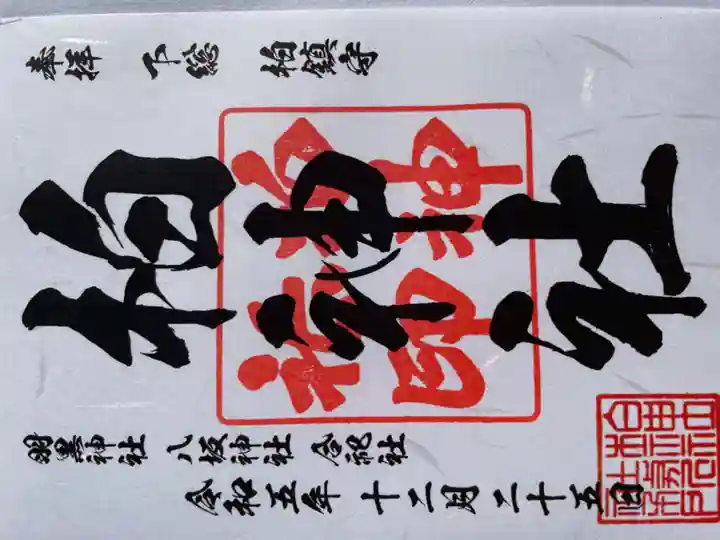 奉拝 下総 柏鎮守
柏神社
柏神
社印
羽黒神社 八坂神社 合祀社
令和五年十二月二十五日